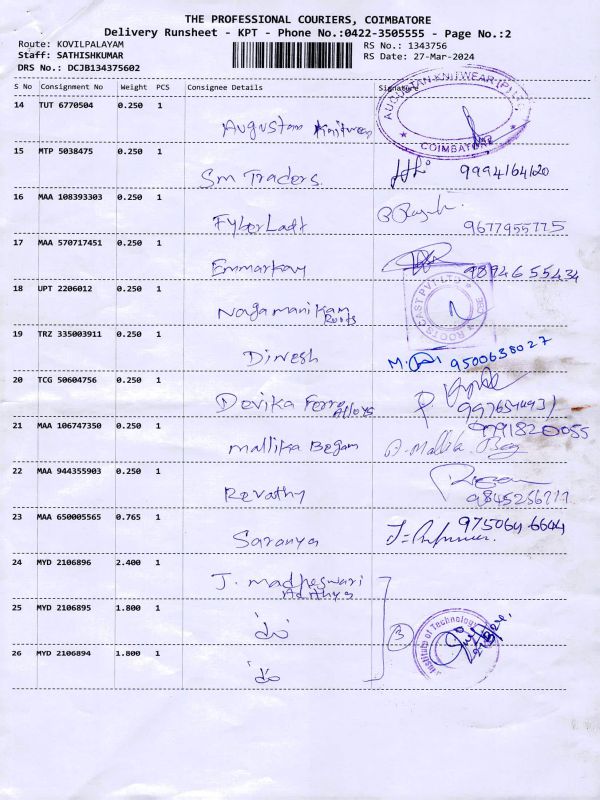 THE PROFESSIONAL COURIERS, COIMBATORE
Delivery Runsheet - KPT - Phone No.:0422-3505555 - Page No.:2
Route: KOVILPALAYAM RS No.: 1343756
Staff: SATHISHKUMAR RS Date: 27-Mar-2024
DRS No.: DCJB134375602
S No Consignment No Weight PCS Consignee Details Signature
AUGUSTAN KNITWEAR (P) LTD
COIMBATORE
14 TUT 6770504 0.250 1
Augustan Knitwear
15 MTP 5038475 0.250 1
Sm Traders. 9994164120
16 MAA 108393303 0.250 1
FyberLadt
9677955775
17 MAA 570717451 0.250 1
Emmarkay 9894655434
18 UPT 2206012 0.250 1
Nagamanikam
Roots
ROOTS CAST PVT LTD
19 TRZ 335003911 0.250 1
Dinesh 9500638027
20 TCG 50604756 0.250 1
Devika Ferro
Alloys
21 MAA 106747350 0.250 1
9791820055
Mallika Begam
22 MAA 944355903 0.250 1
Revathy
23 MAA 650005565 0.765 1
Saranya 9750646644
24 MYD 2106896 2.400 1
J. Madheswari
Adithya
25 MYD 2106895 1.800 1
'do' 3
Institute of Technology
26 MYD 2106894 1.800 1
'do'